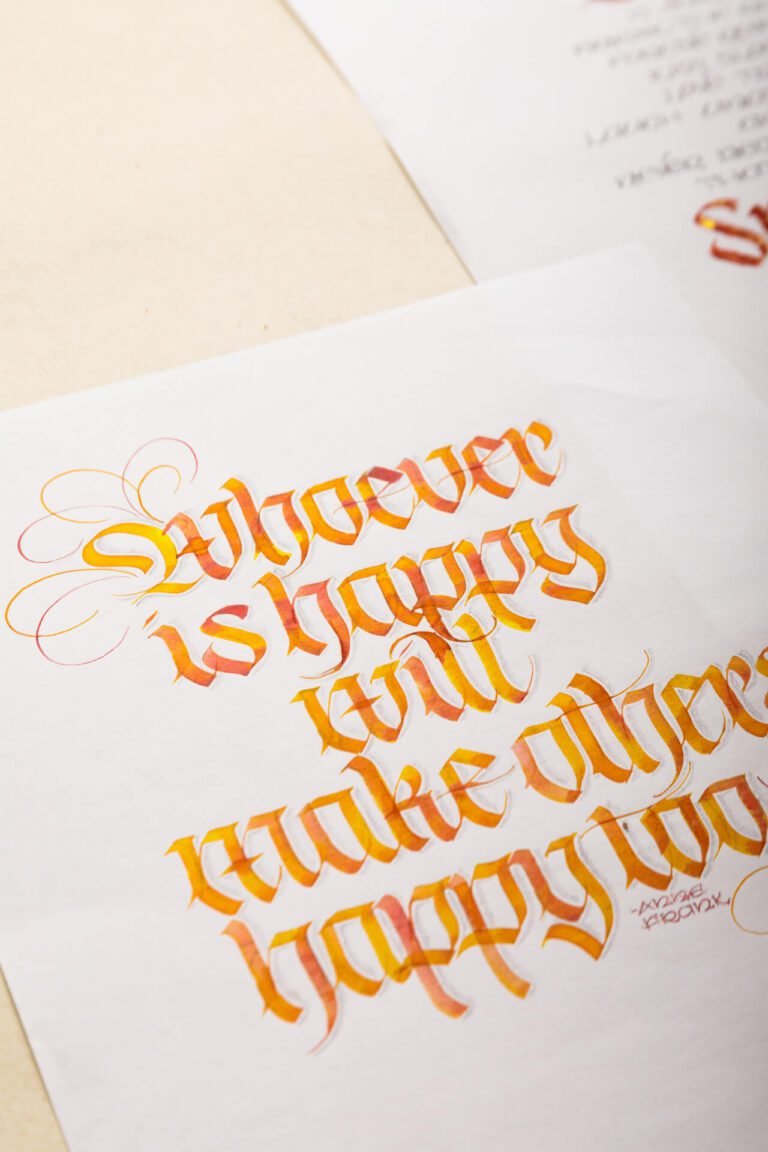 Whoever
is happy
will
make others
happy too
-ANNE
FRANK